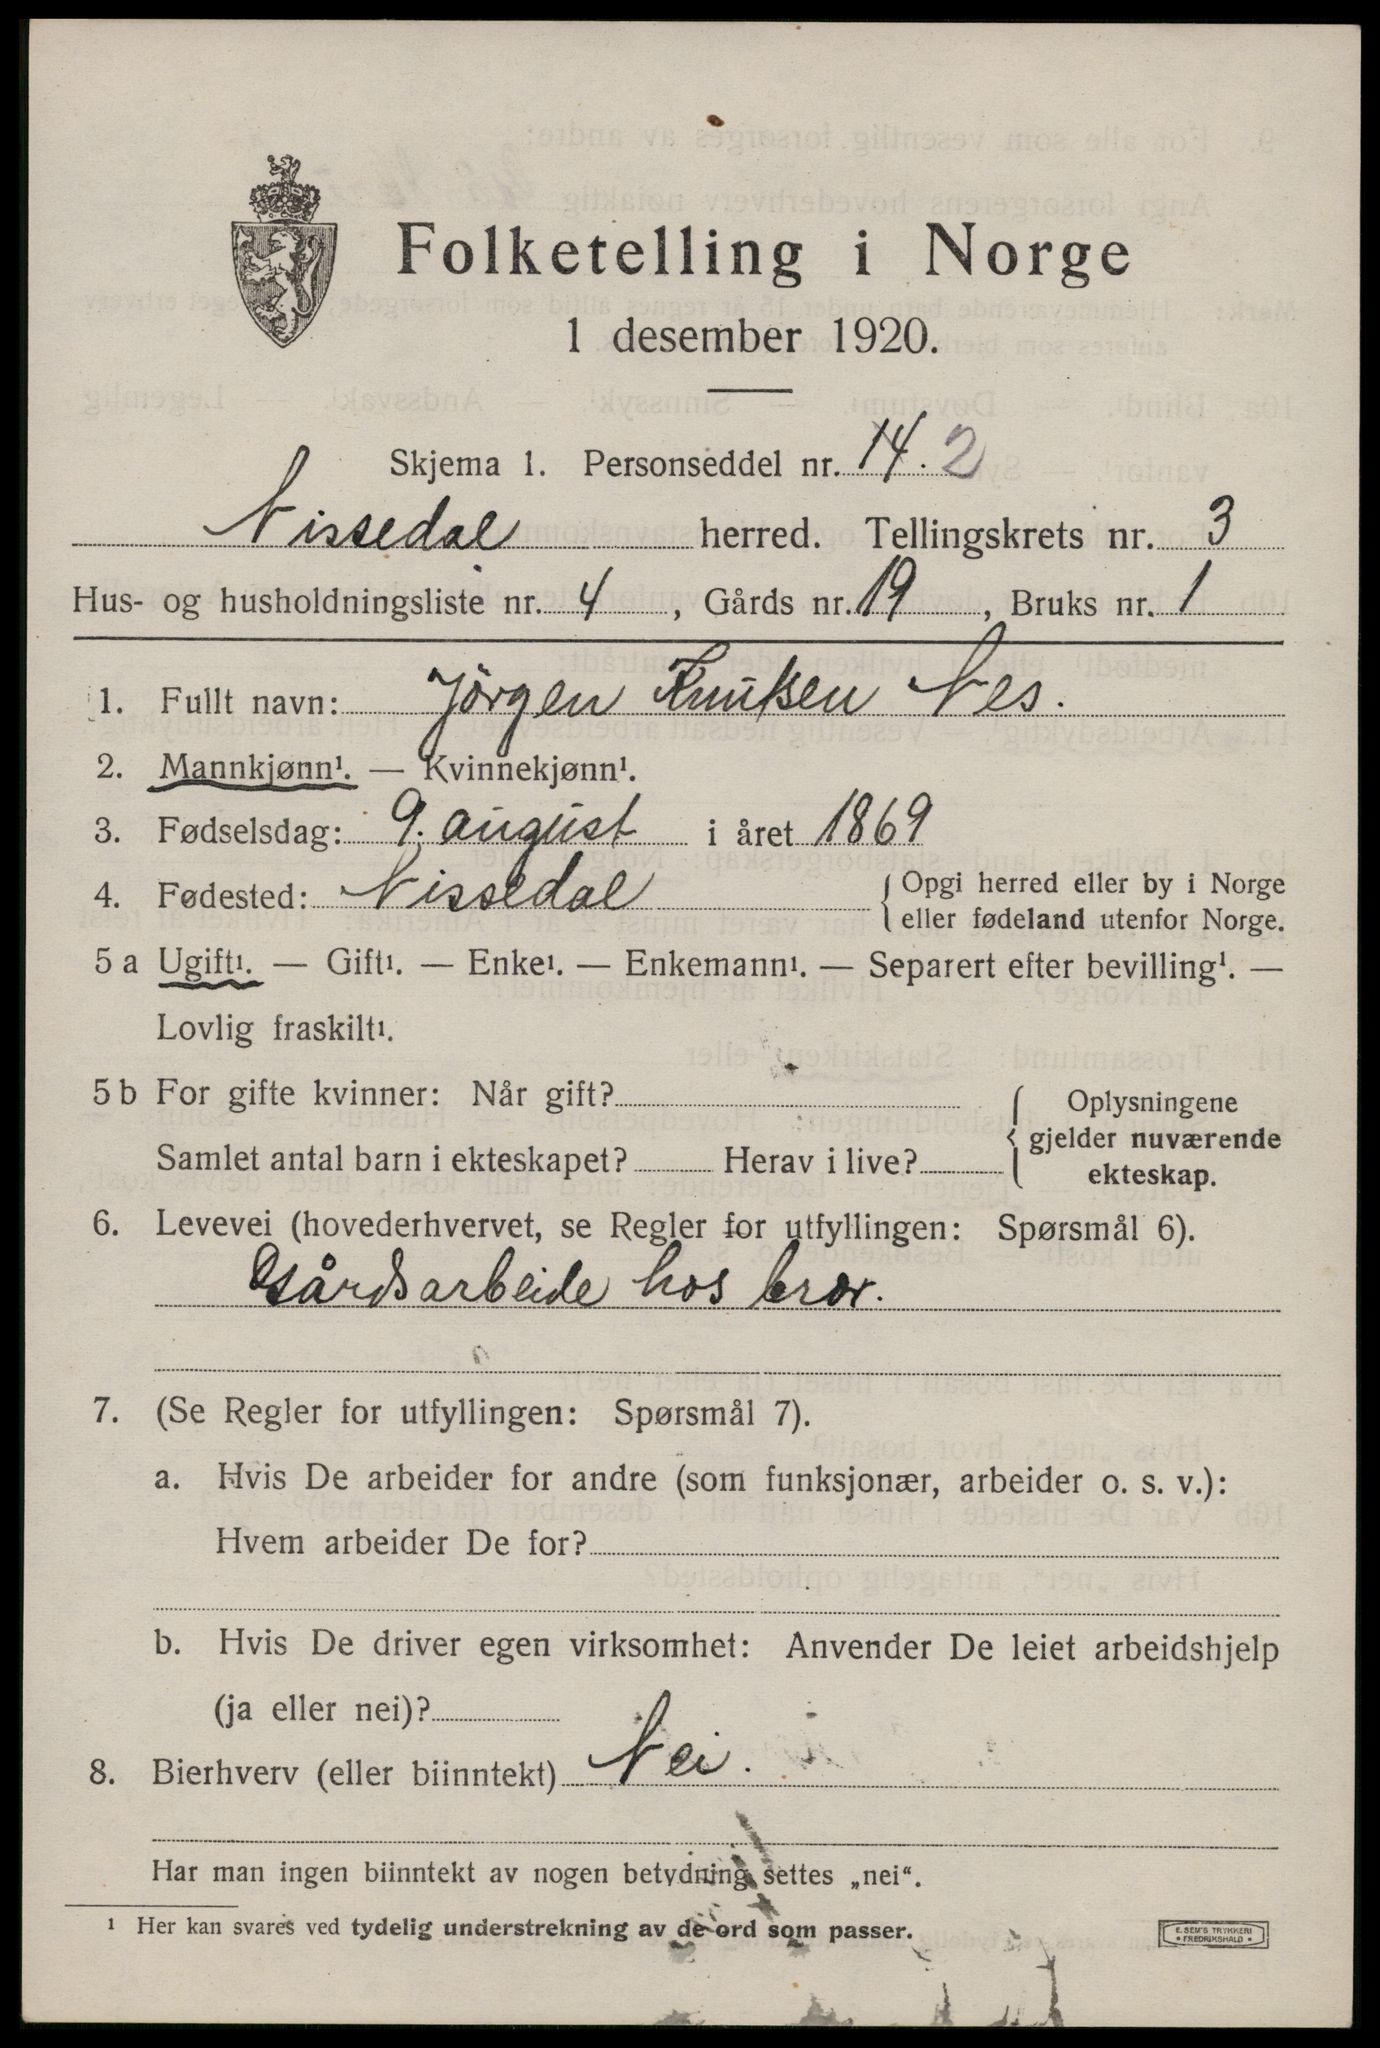 Folketelling i Norge
1 desember 1920.
Skjema 1. Personseddel nr. 14. 2
Nissedal herred. Tellingskrets nr. 3
Hus- og husholdningsliste nr. 4, Gårds nr. 19, Bruks nr. 1
1. Fullt navn: Jörgen Knutsen Nes.
2. Mannkjønn¹. — Kvinnekjønn¹.
3. Fødselsdag: 9. august i året 1869
4. Fødested: Nissedal { Opgi herred eller by i Norge
eller fødeland utenfor Norge.
5 a Ugift¹. — Gift¹. — Enke¹. — Enkemann¹. — Separert efter bevilling¹. —
Lovlig fraskilt¹.
5 b For gifte kvinner: Når gift? { Oplysningene
gjelder nuværende
ekteskap.
Samlet antal barn i ekteskapet? Herav i live?
6. Levevei (hovederhvervet, se Regler for utfyllingen: Spørsmål 6).
Gårdsarbeide hos bror.
7. (Se Regler for utfyllingen: Spørsmål 7).
a. Hvis De arbeider for andre (som funksjonær, arbeider o. s. v.):
Hvem arbeider De for?
b. Hvis De driver egen virksomhet: Anvender De leiet arbeidshjelp
(ja eller nei)?
8. Bierhverv (eller biinntekt) Nei.
Har man ingen biinntekt av nogen betydning settes „nei“.
¹ Her kan svares ved tydelig understrekning av de ord som passer.
E. SEM'S TRYKKERI
* FREDRIKSHALD *